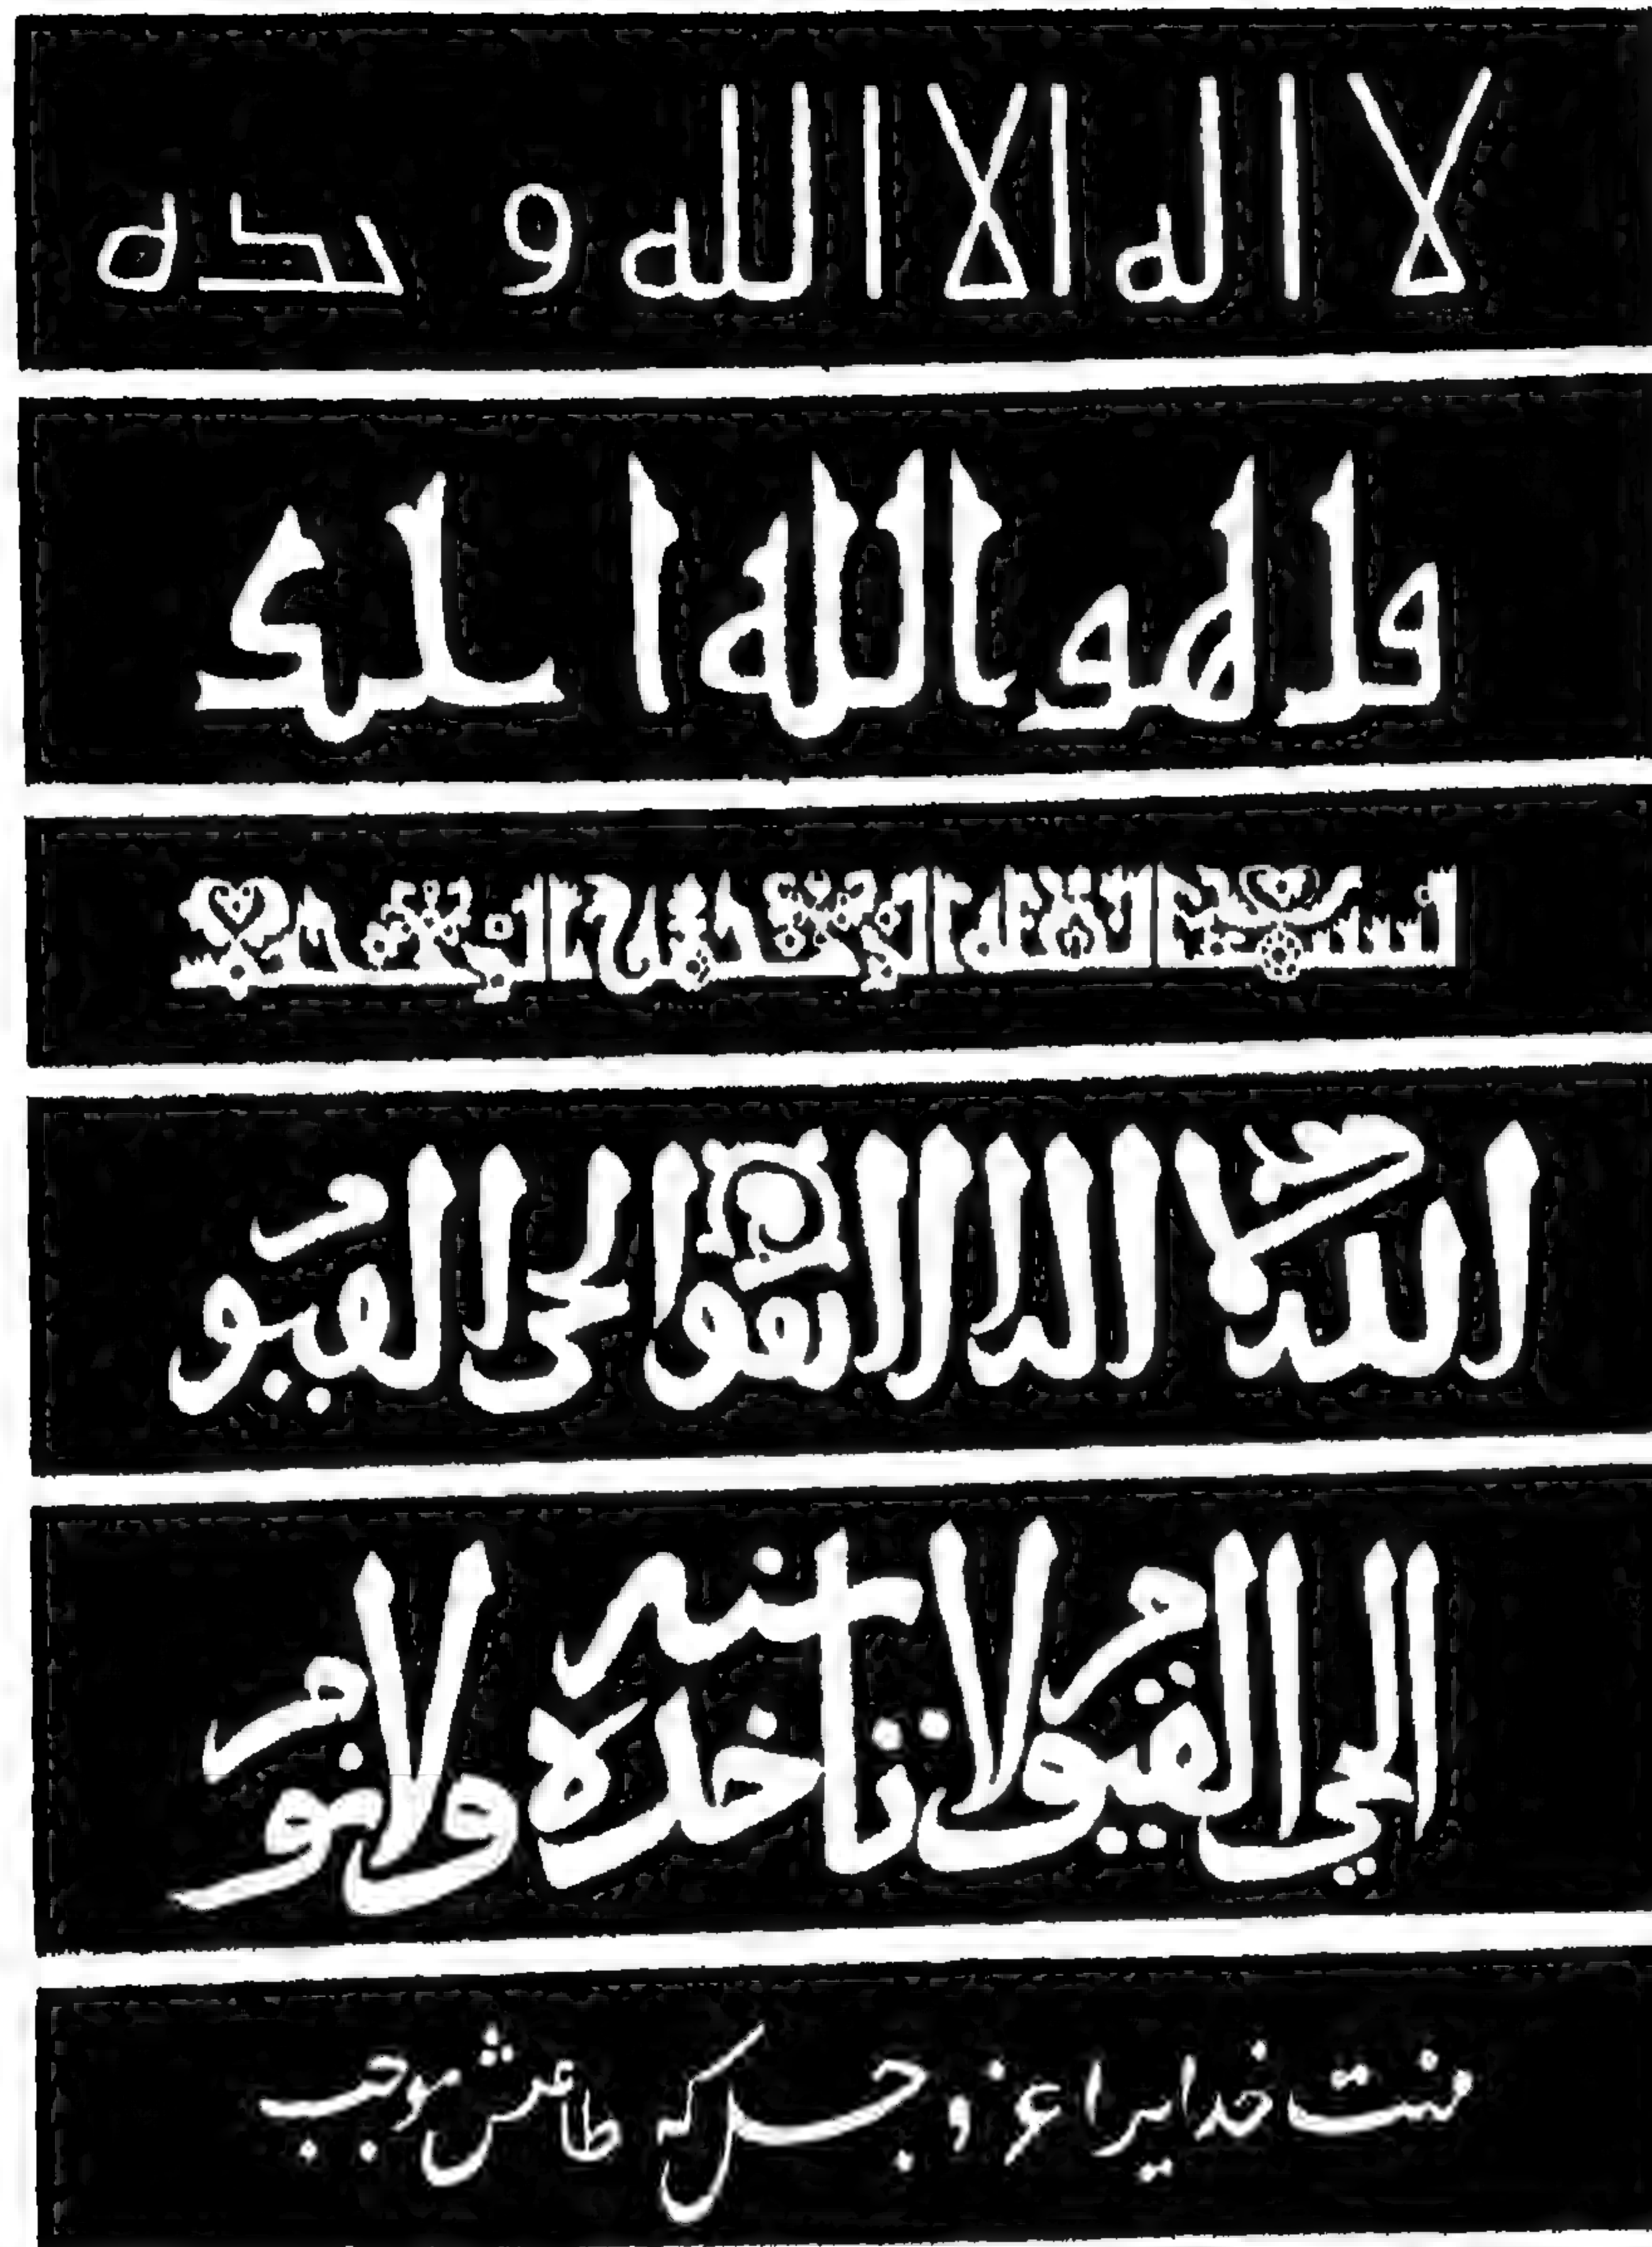 لا اله الا الله وحده
قل هو الله ا ملک
بسم الله الرحمن الرحيم
الله لا اله الا هو الحى القيو م
الحي القيوم لا تاخذه سنه ولا نوم
منت خدایرا عز و جل که طاعتش موجب